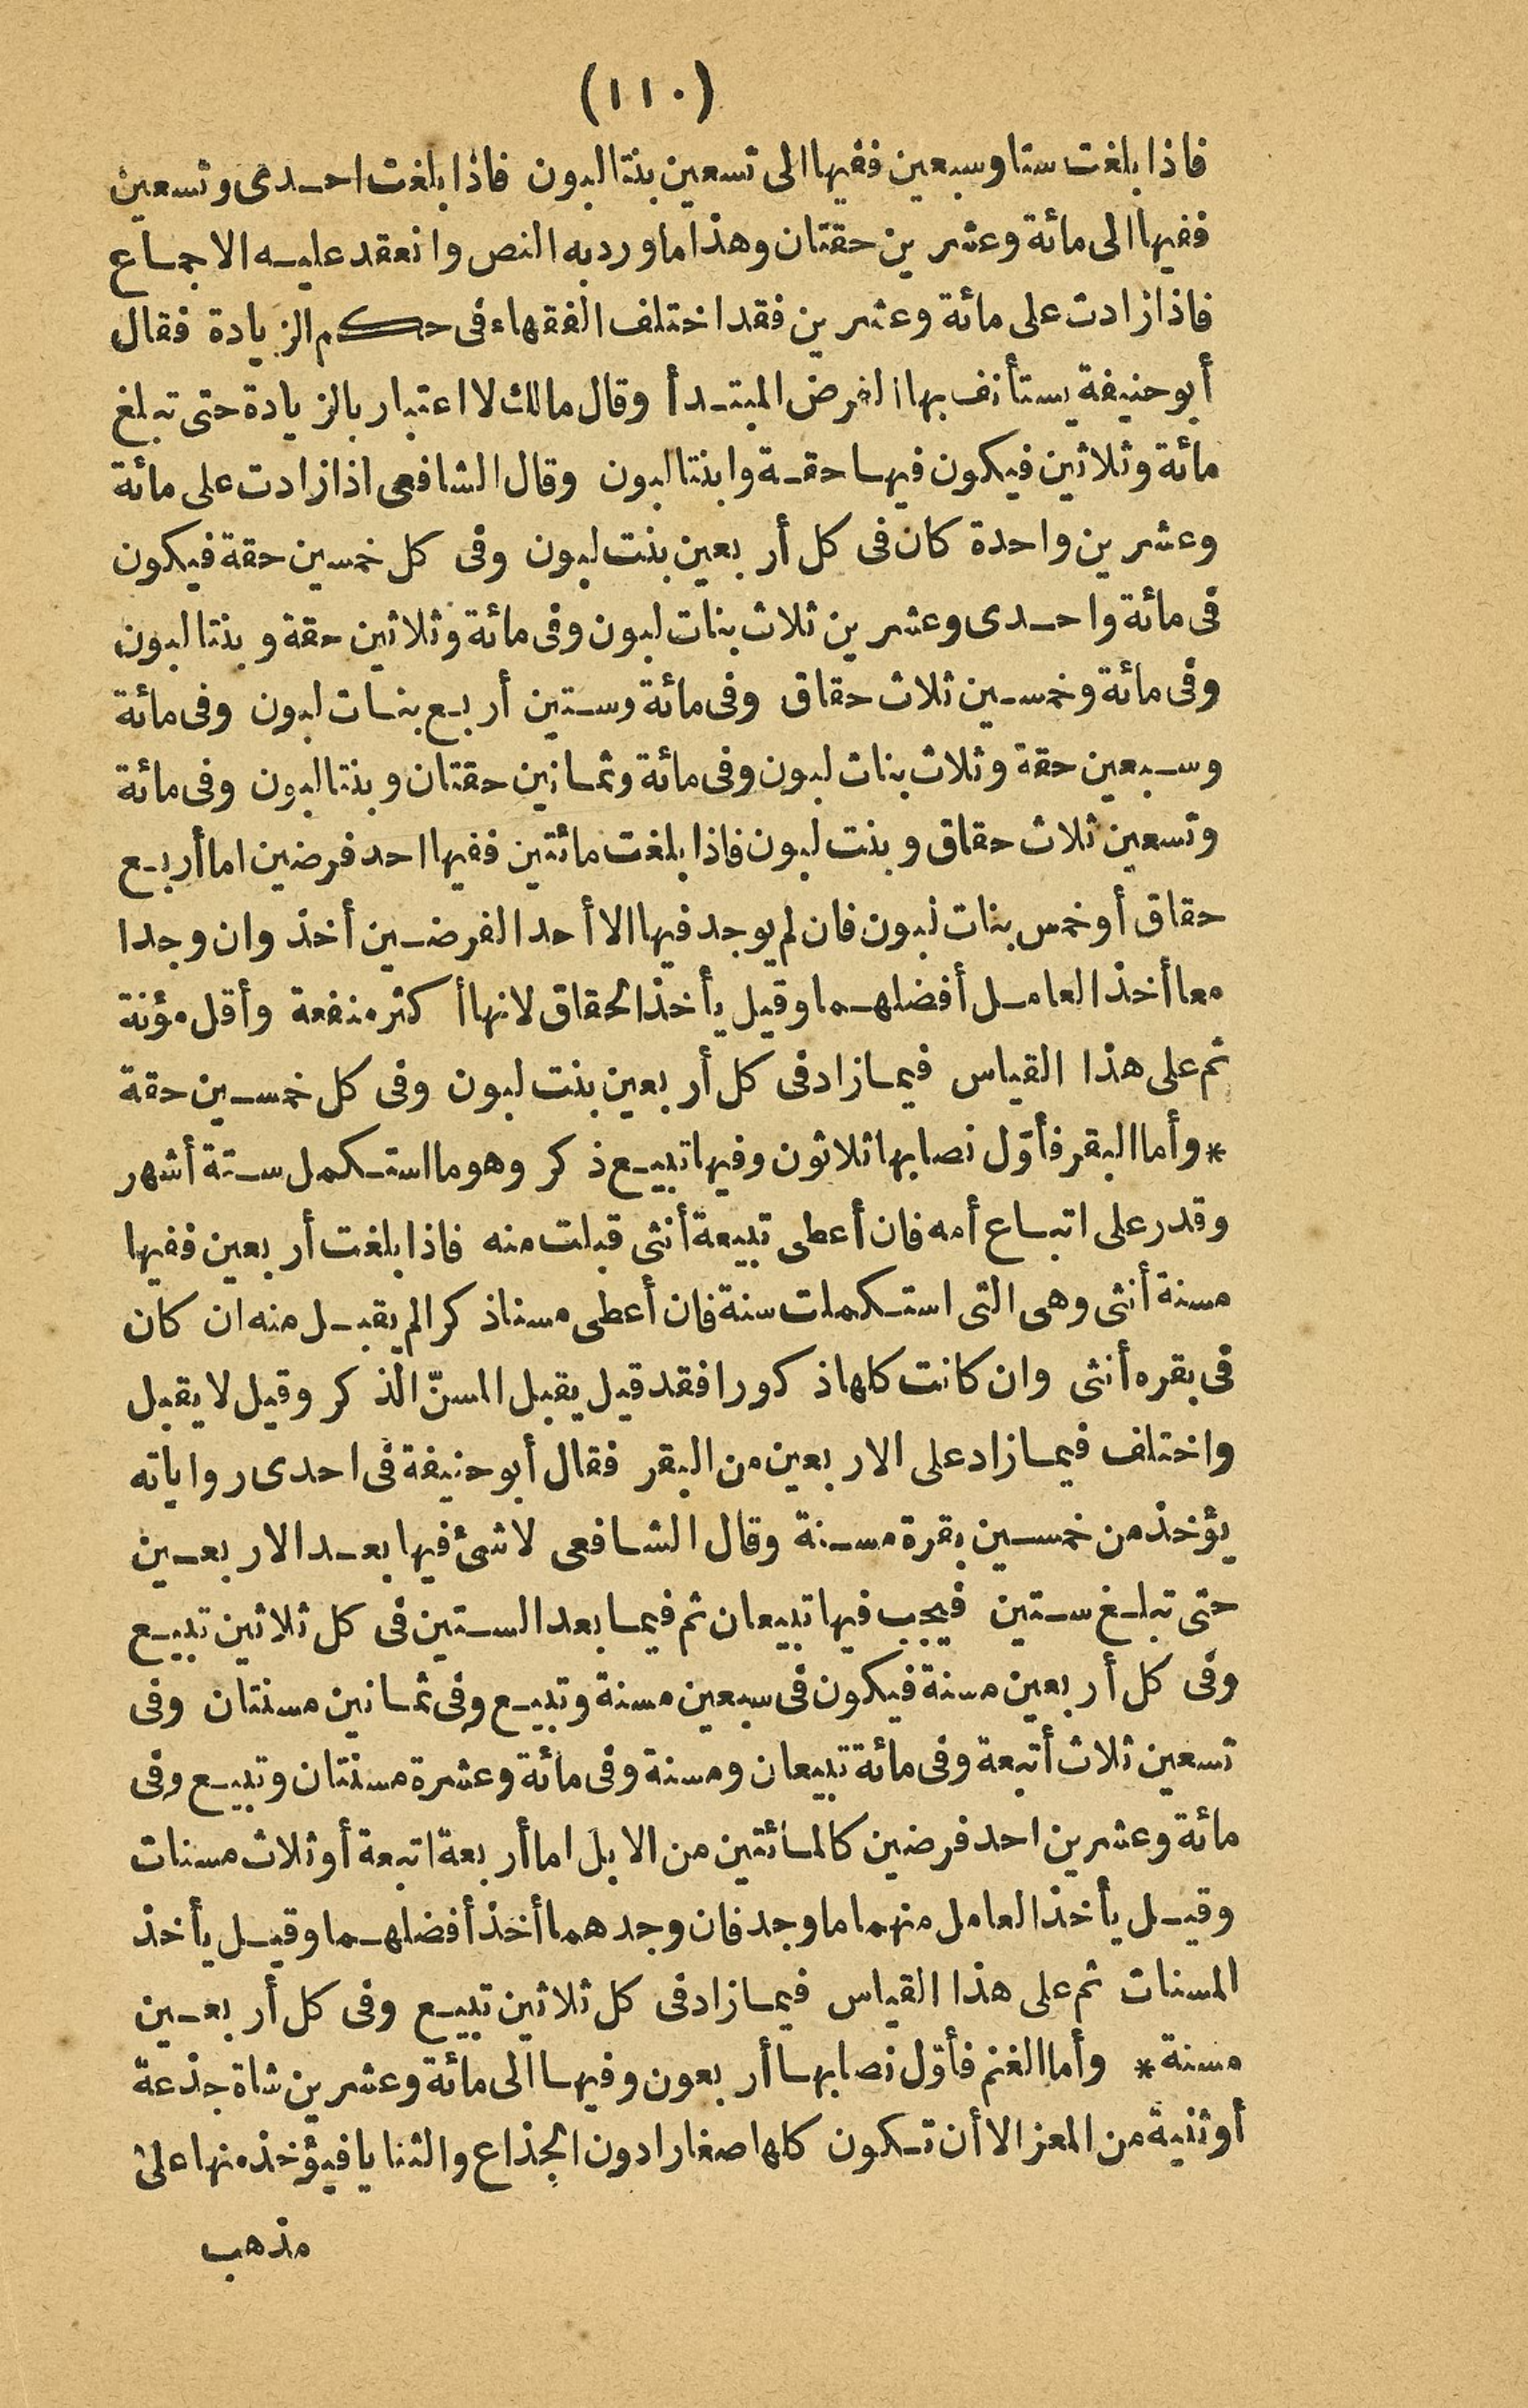 (١١٠)
فاذا بلغت ستا وسبعين ففيها الى تسعين بنتا لبون فاذا بلغت احدى وتسعين
ففيها الى مائة وعشرين حقتان وهذا ما ورد به النص وانعقد عليه الاجماع
فاذا زادت على مائة وعشرين فقد اختلف الفقهاء فى حكم الزيادة فقال
أبو حنيفة يستأنف بها الفرض المبتدأ وقال مالك لا اعتبار بالزيادة حتى تبلغ
مائة وثلاثين فيكون فيها حقة وابنتا لبون وقال الشافعى اذا زادت على مائة
وعشرين واحدة كان فى كل أربعين بنت لبون وفى كل خمسين حقة فيكون
فى مائة واحدى وعشرين ثلاث بنات لبون وفى مائة وثلاثين حقة وبنتا لبون
وفى مائة وخمسين ثلاث حقاق وفى مائة وستين أربع بنات لبون وفى مائة
وسبعين حقة وثلاث بنات لبون وفى مائة وثمانين حقتان وبنتا لبون وفى مائة
وتسعين ثلاث حقاق وبنت لبون فاذا بلغت مائتين ففيها احد فرضين اما أربع
حقاق أو خمس بنات لبون فان لم يوجد فيها الا أحد الفرضين أخذ وان وجدا
معا أخذ العامل أفضلهما وقيل يأخذ الحقاق لانها أكثر منفعة وأقل مؤنة
ثم على هذا القياس فيما زاد فى كل أربعين بنت لبون وفى كل خمسين حقة
* وأما البقر فأوّل نصابها ثلاثون وفيها تبيع ذكر وهو ما استكمل ستة أشهر
وقدر على اتباع أمه فان أعطى تبيعة أنثى قبلت منه فاذا بلغت أربعين ففيها
مسنة أنثى وهى التى استكملت سنة فان أعطى مسنا ذكرا لم يقبل منه ان كان
فى بقره أنثى وان كانت كلها ذكورا فقد قيل يقبل المسنّ الذكر وقيل لا يقبل
واختلف فيما زاد على الاربعين من البقر فقال أبو حنيفة فى احدى رواياته
يؤخذ من خمسين بقرة مسنة وقال الشافعى لا شئ فيها بعد الاربعين
حتى تبلغ ستين فيجب فيها تبيعان ثم فيما بعد الستين فى كل ثلاثين تبيع
وفى كل أربعين مسنة فيكون فى سبعين مسنة وتبيع وفى ثمانين مسنتان وفى
تسعين ثلاث أتبعة وفى مائة تبيعان ومسنة وفى مائة وعشرة مسنتان وتبيع وفى
مائة وعشرين احد فرضين كالمائتين من الابل اما أربعة اتبعة أو ثلاث مسنات
وقيل يأخذ العامل منهما ما وجد فان وجدهما أخذ أفضلهما وقيل يأخذ
المسنات ثم على هذا القياس فيما زاد فى كل ثلاثين تبيع وفى كل أربعين
مسنة * وأما الغنم فأوّل نصابها أربعون وفيها الى مائة وعشرين شاة جذعة
أو ثنية من المعز الا أن تكون كلها صغارا دون الجذاع والثنايا فيؤخذ منها على
مذهب